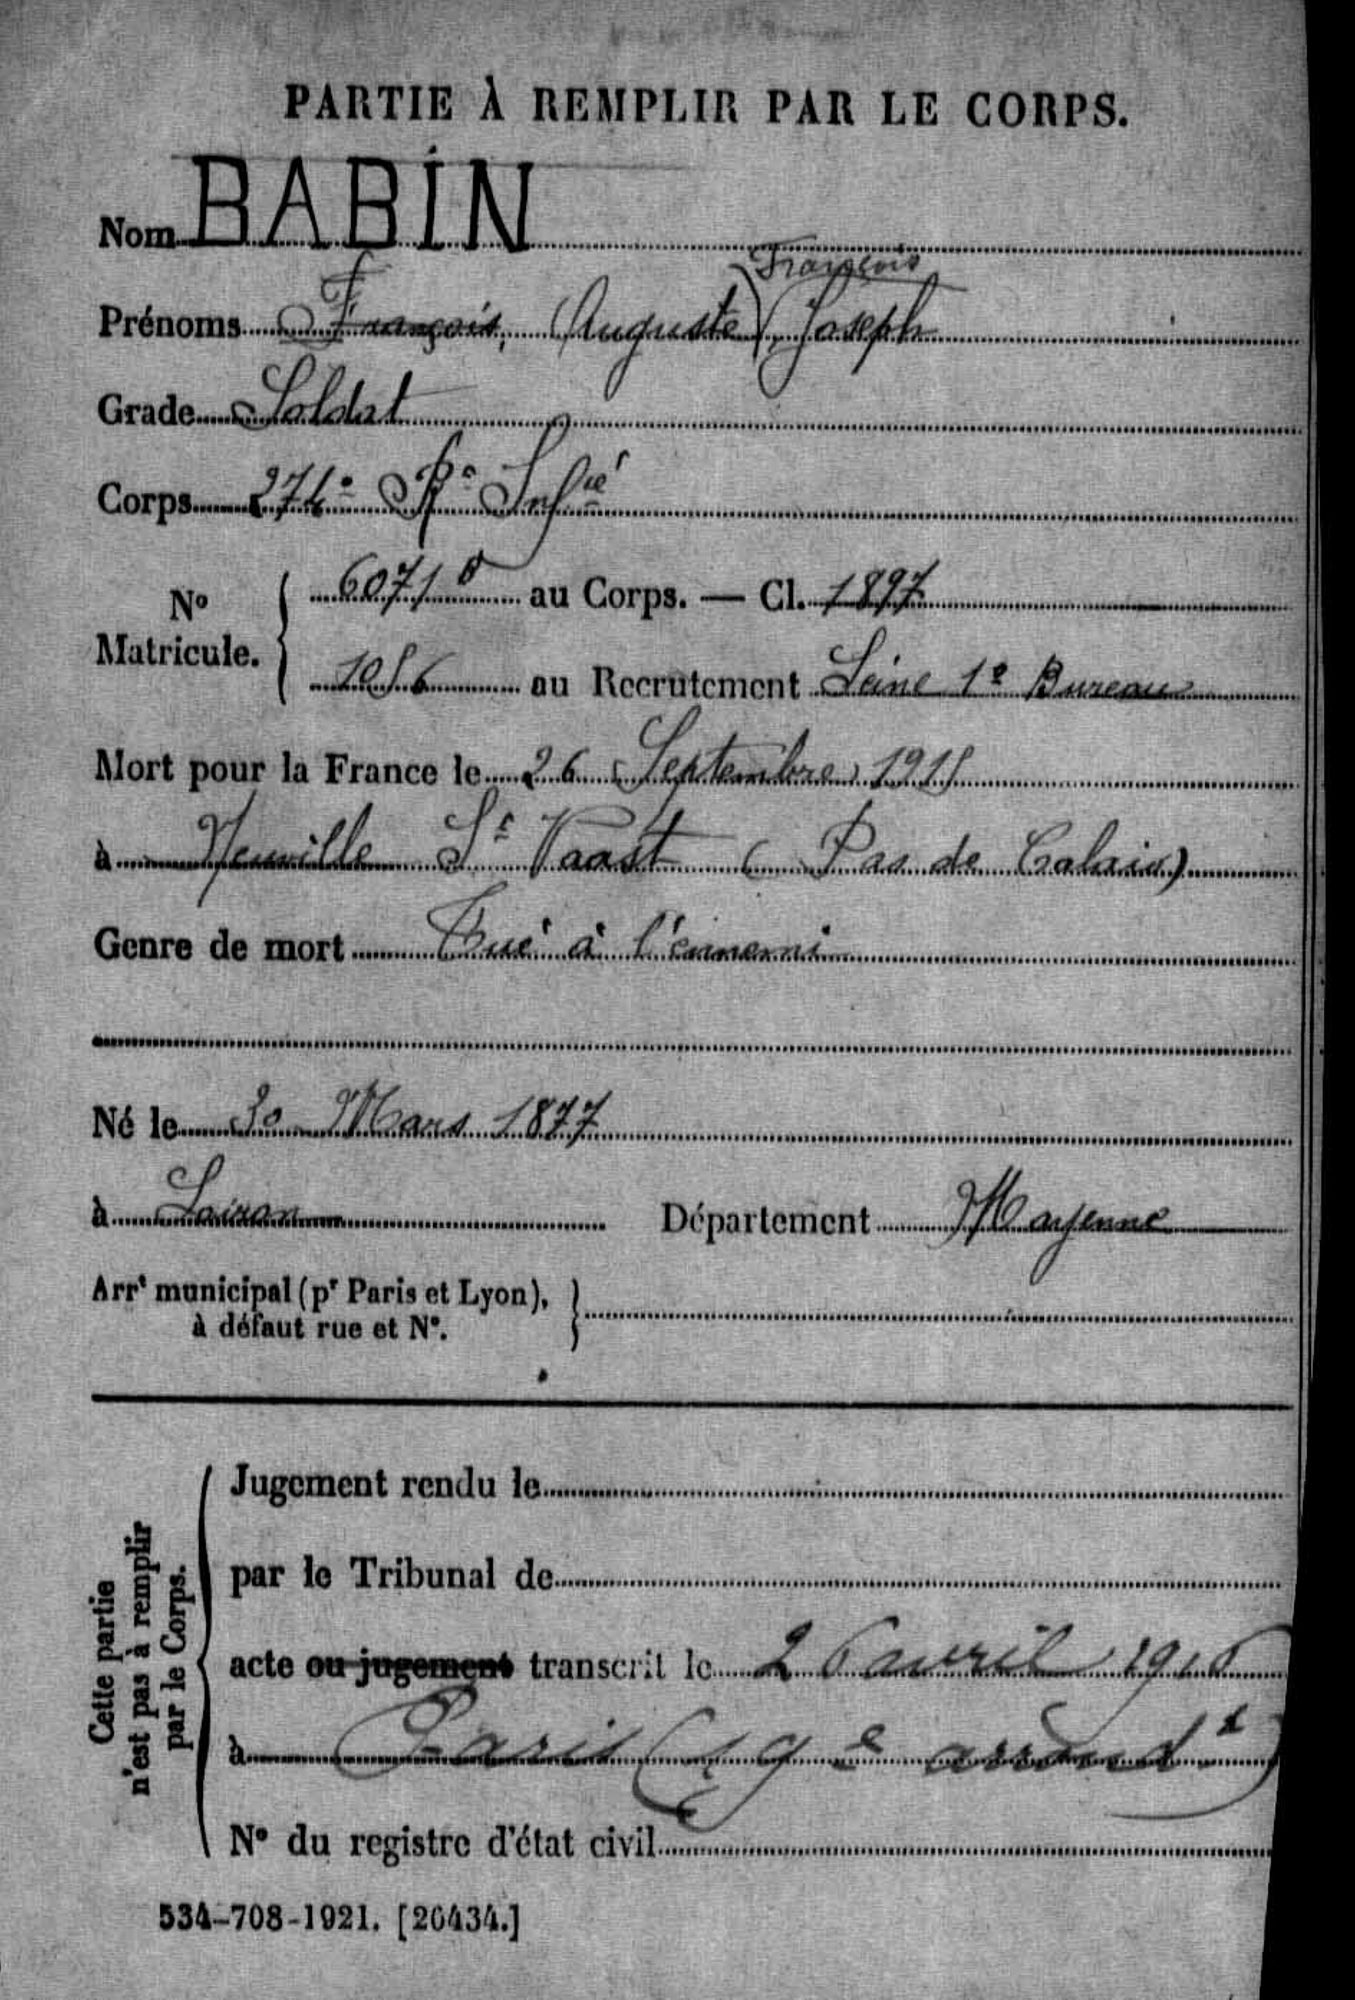 PARTIE À REMPLIR PAR LE CORPS.
Nom BABIN
François
Prénoms François, (Auguste) Joseph
Grade Soldat
Corps 274e Rt Infie
No Matricule. 6071 au Corps. — Cl. 1897
1056 au Recrutement Seine 1e Bureau
Mort pour la France le 26 Septembre 1915
à Neuville St Vaast (Pas de Calais)
Genre de mort Tué à l'ennemi
Né le 30 Mars 1877
à Loiron Département Mayenne
Arrt municipal (pr Paris et Lyon),
à défaut rue et No.
Cette partie
n'est pas à remplir
par le Corps.
Jugement rendu le
par le Tribunal de
acte ou jugement transcrit le 2 avril 1916
à Paris (19e arrondt)
No du registre d'état civil
534-708-1921. [26434.]